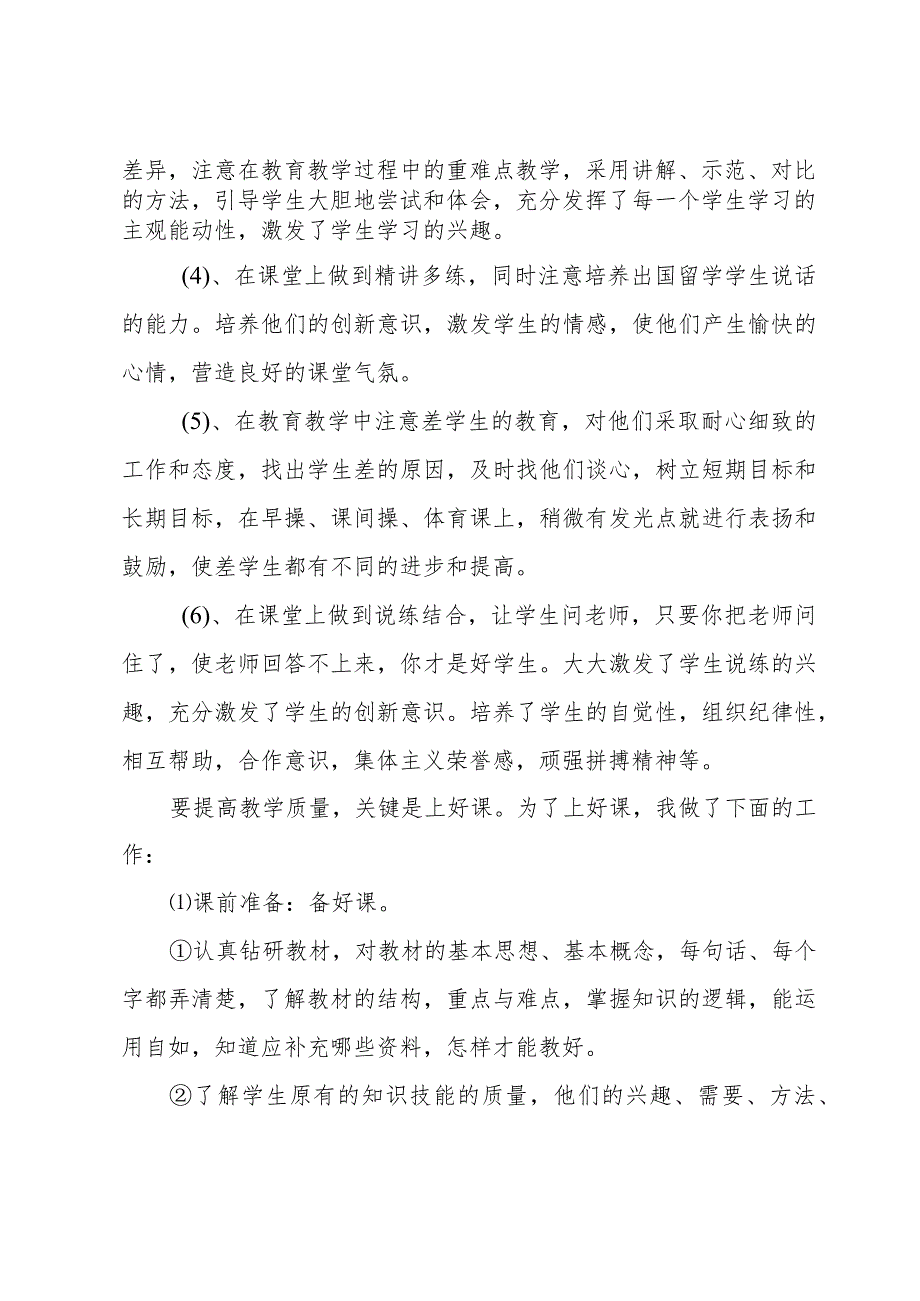 差异，注意在教育教学过程中的重难点教学，采用讲解、示范、对比
的方法，引导学生大胆地尝试和体会，充分发挥了每一个学生学习的
主观能动性，激发了学生学习的兴趣。
(4)、在课堂上做到精讲多练，同时注意培养出国留学学生说话
的能力。培养他们的创新意识，激发学生的情感，使他们产生愉快的
心情，营造良好的课堂气氛。
(5)、在教育教学中注意差学生的教育，对他们采取耐心细致的
工作和态度，找出学生差的原因，及时找他们谈心，树立短期目标和
长期目标，在早操、课间操、体育课上，稍微有发光点就进行表扬和
鼓励，使差学生都有不同的进步和提高。
(6)、在课堂上做到说练结合，让学生问老师，只要你把老师问
住了，使老师回答不上来，你才是好学生。大大激发了学生说练的兴
趣，充分激发了学生的创新意识。培养了学生的自觉性，组织纪律性，
相互帮助，合作意识，集体主义荣誉感，顽强拼搏精神等。
要提高教学质量，关键是上好课。为了上好课，我做了下面的工
作：
⑴课前准备：备好课。
①认真钻研教材，对教材的基本思想、基本概念，每句话、每个
字都弄清楚，了解教材的结构，重点与难点，掌握知识的逻辑，能运
用自如，知道应补充哪些资料，怎样才能教好。
②了解学生原有的知识技能的质量，他们的兴趣、需要、方法、